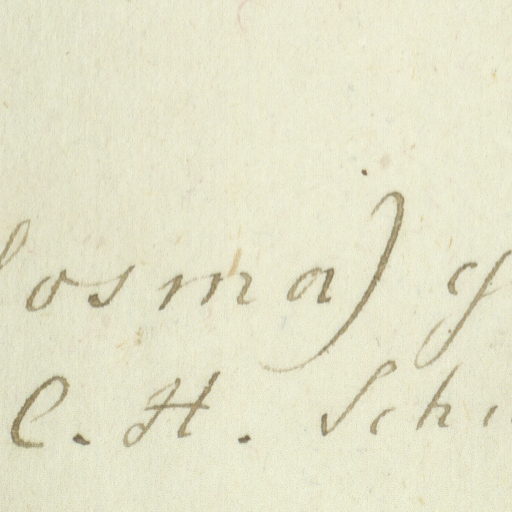 losma) cy
C. H. Schi